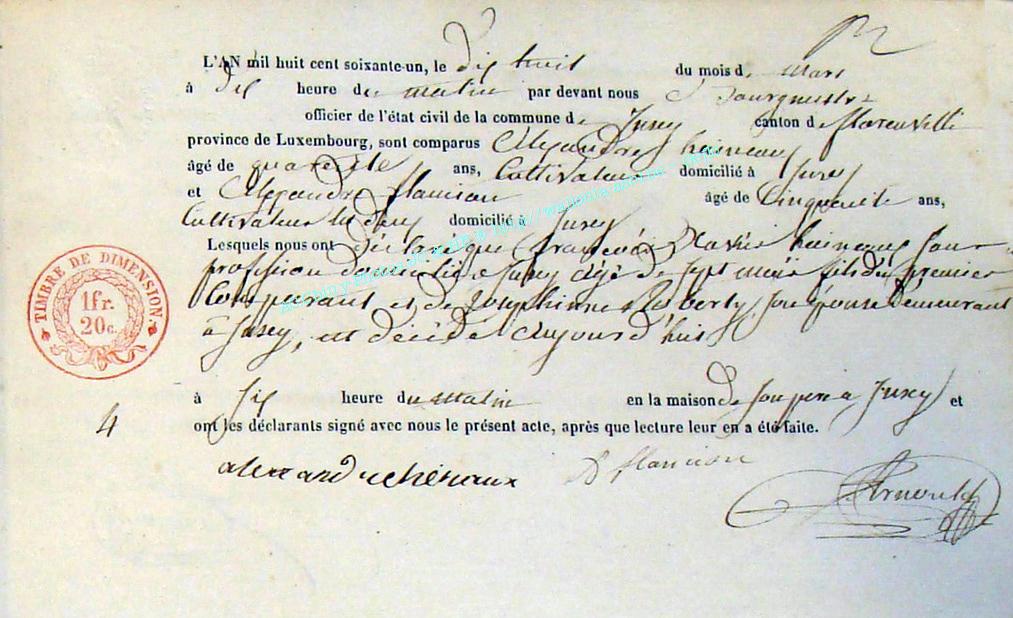 L'AN mil huit cent soixante-un, le dix huit du mois de mars
à dix heure du matin par devant nous Bourgmestre
officier de l'état civil de la commune de Jusey canton de florenville
province de Luxembourg, sont comparus Alexandre haineaux
âgé de quarente ans, Cultivateur domicilié à Jusey
et Alexandre flamion âgé de Cinquente ans,
Cultivateur domicilié à Jusey
Lesquels nous ont déclaré que Xavier haineaux sans
profession domicilié a Jusey agé de sept mois fils du premier
Comparant et de Josephinne Roberty, son épouse demeurant
à Jusey, est décédé aujourd'huis
à six heure du matin en la maison de son pere a Jusey et
ont les déclarants signé avec nous le présent acte, après que lecture leur en a été faite.
4
TIMBRE DE DIMENSION
1fr.
20c.
alexandre hénaux
A flamion
Arnould